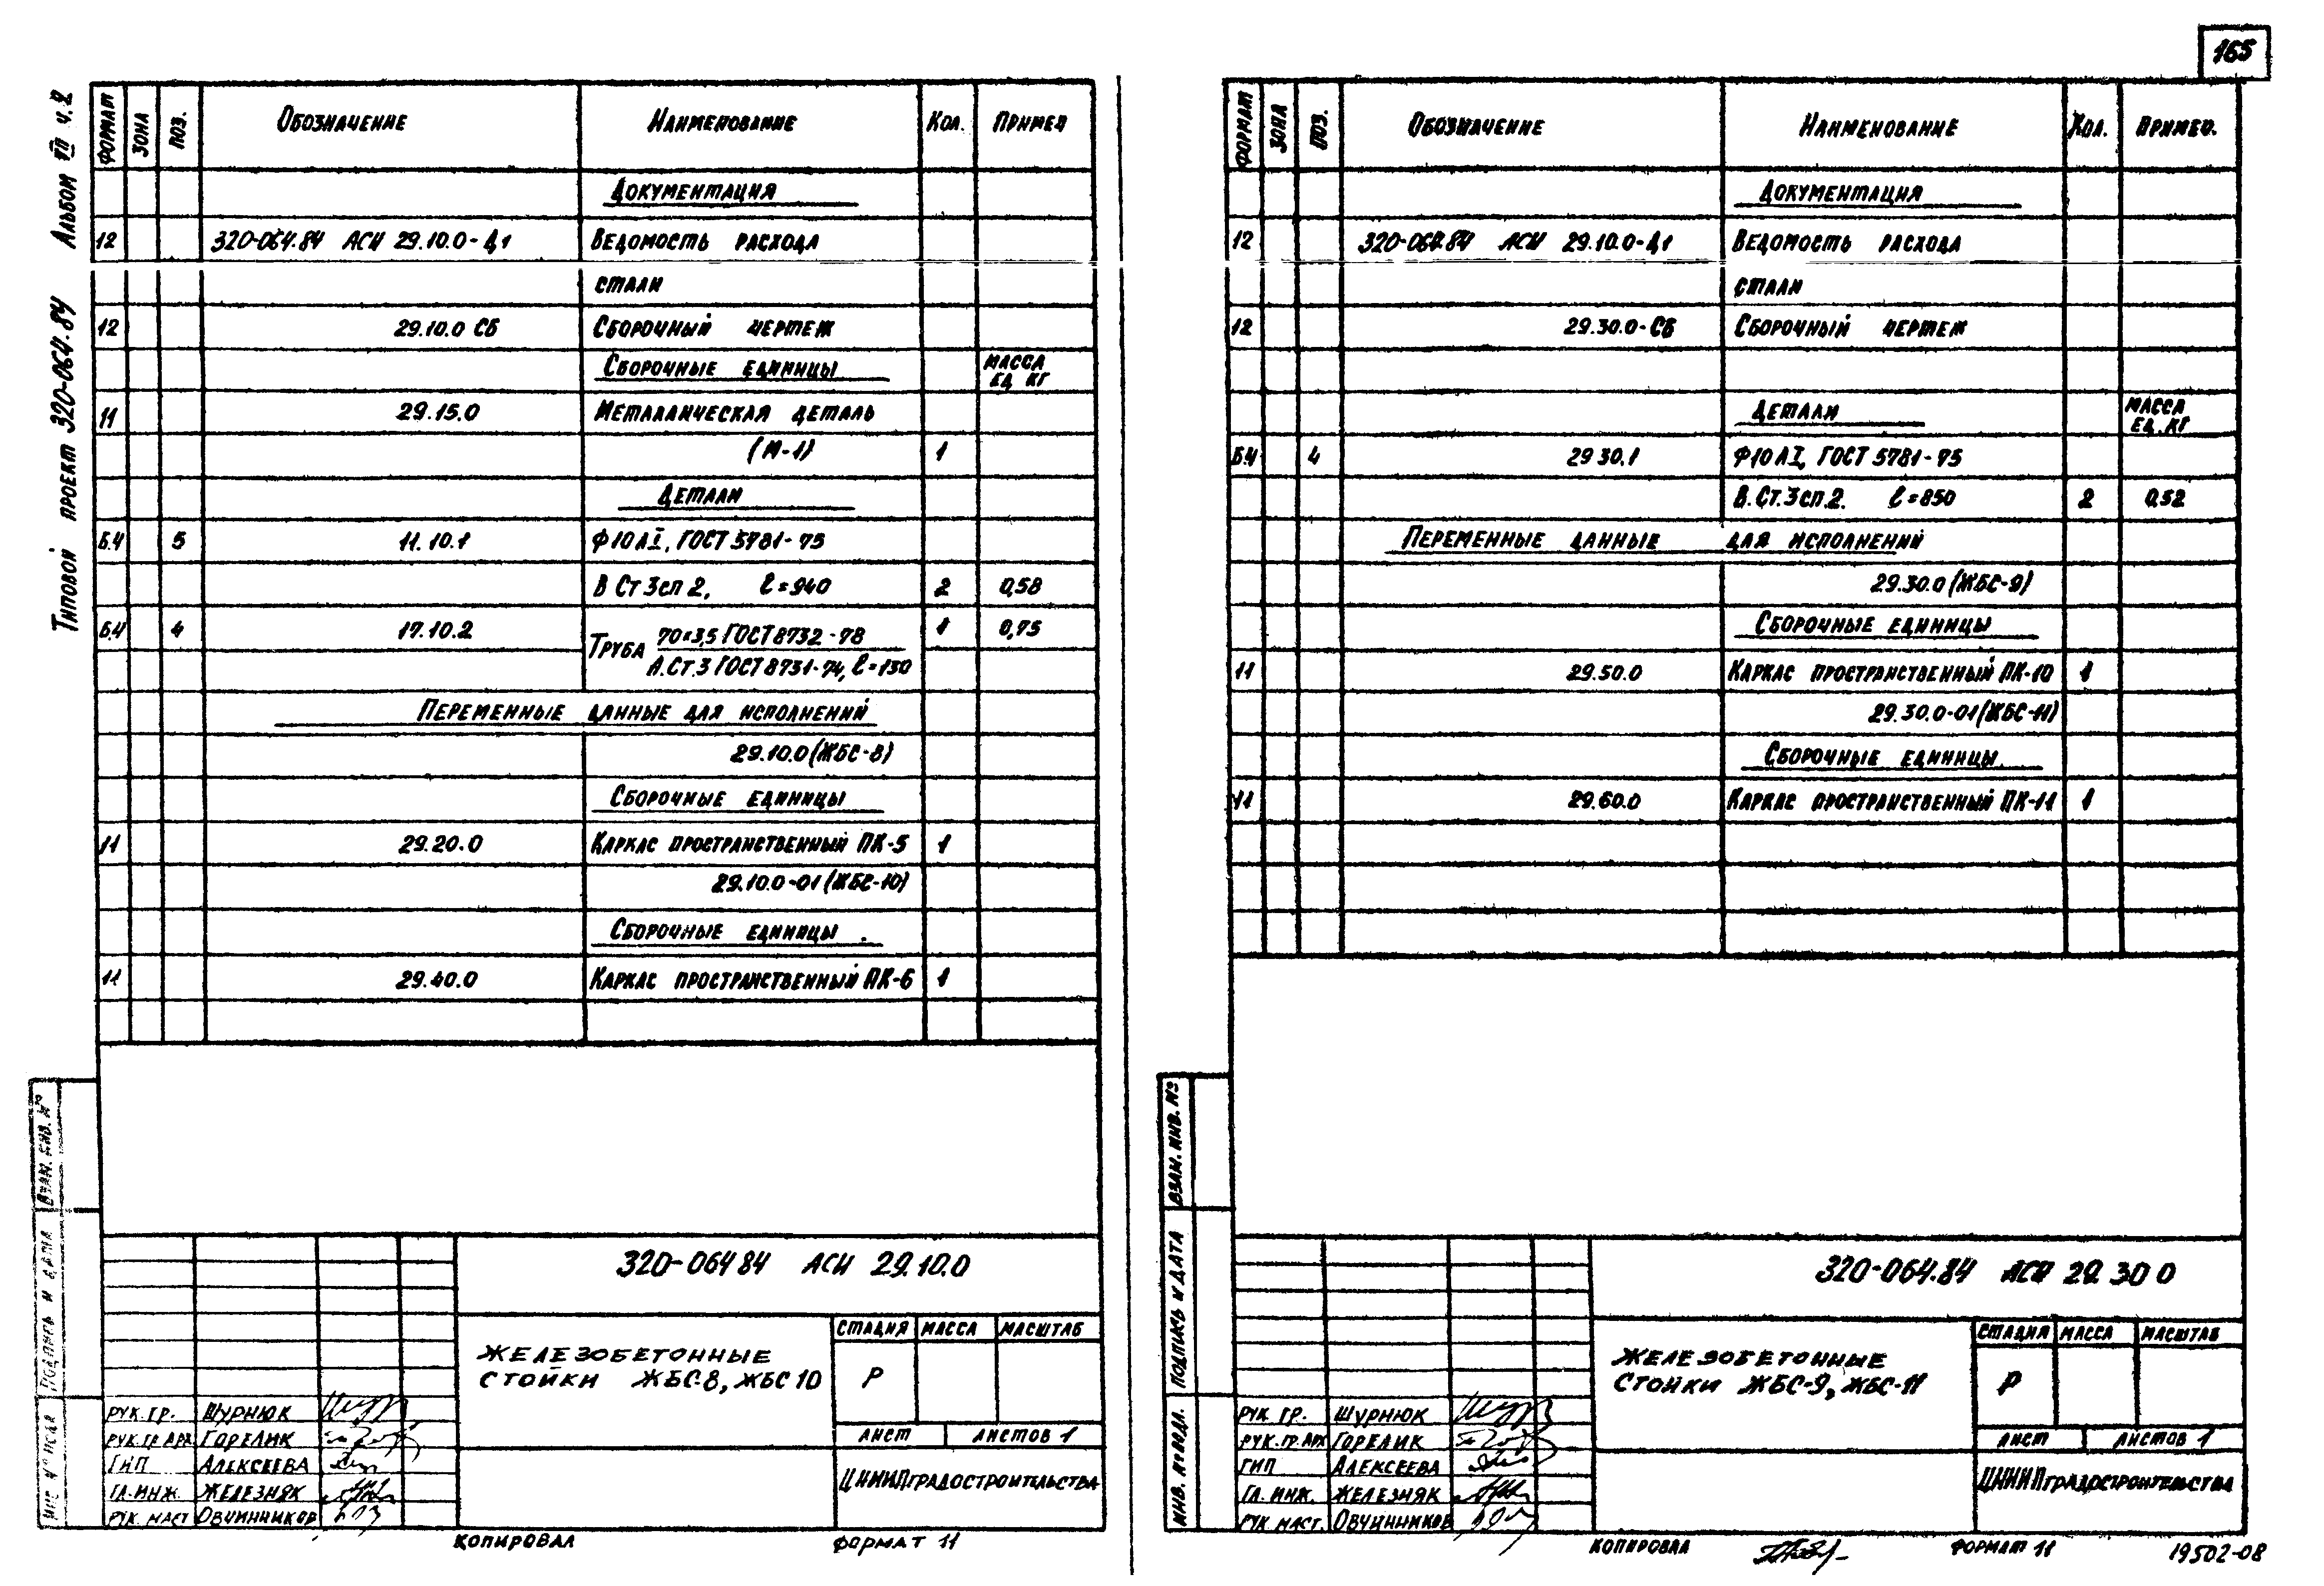 165
Типовой проект 320-064.84 Альбом VII ч.2
Формат Зона Поз. Обозначение Наименование Кол. Примеч
Документация
12 320-064.84 АСИ 29.10.0-Д1 Ведомость расхода
стали
12 29.10.0 СБ Сборочный чертеж
Сборочные единицы Масса
ед кг
11 29.15.0 Металлическая деталь
(М-1) 1
Детали
Б.4 5 11.10.1 Ф10АI, ГОСТ 5781-75
В Ст 3сп 2, ℓ=940 2 0,58
Б.4 4 17.10.2 Труба 70×3,5 ГОСТ 8732-78 1 0,75
А.Ст.3 ГОСТ 8731-74, ℓ=130
Переменные данные для исполнений
29.10.0 (ЖБС-8)
Сборочные единицы
11 29.20.0 Каркас пространственный ПК-5 1
29.10.0-01 (ЖБС-10)
Сборочные единицы.
11 29.40.0 Каркас пространственный ПК-6 1
Взам. инв. №
Подпись и дата
Инв № подл
320-064 84 АСИ 29.10.0
Железобетонные
стойки ЖБС-8, ЖБС 10
Стадия Масса Масштаб
Р
Лист Листов 1
ЦНИИПградостроительства
Рук. гр. Шурнюк
Рук. гр арх Горелик
ГИП Алексеева
Гл. инж. Железняк
Рук. маст Овчинников
Копировал Формат 11
Формат Зона Поз. Обозначение Наименование Кол. Примеч.
Документация
12 320-064.84 АСИ 29.10.0-Д1 Ведомость расхода
стали
12 29.30.0-СБ Сборочный чертеж
Детали Масса
ед. кг
Б.4 4 29 30.1 Ф10АI, ГОСТ 5781-75
В. Ст. 3сп. 2. ℓ=850 2 0,52
Переменные данные для исполнений
29.30.0 (ЖБС-9)
Сборочные единицы
11 29.50.0 Каркас пространственный ПК-10 1
29.30.0-01 (ЖБС-11)
Сборочные единицы.
11 29.60.0 Каркас пространственный ПК-11 1
Взам. инв. №
Подпись и дата
Инв. № подл.
320-064.84 АСИ 29 30 0
Железобетонные
стойки ЖБС-9, ЖБС-11
Стадия Масса Масштаб
Р
Лист Листов 1
ЦНИИПградостроительства
Рук гр. Шурнюк
Рук. гр. арх Горелик
ГИП Алексеева
Гл. инж. Железняк
Рук маст. Овчинников
Копировал Формат 11
19502-08